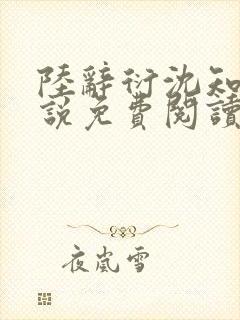 陸辭衍沈知
說免費閱讀
夜嵐雪